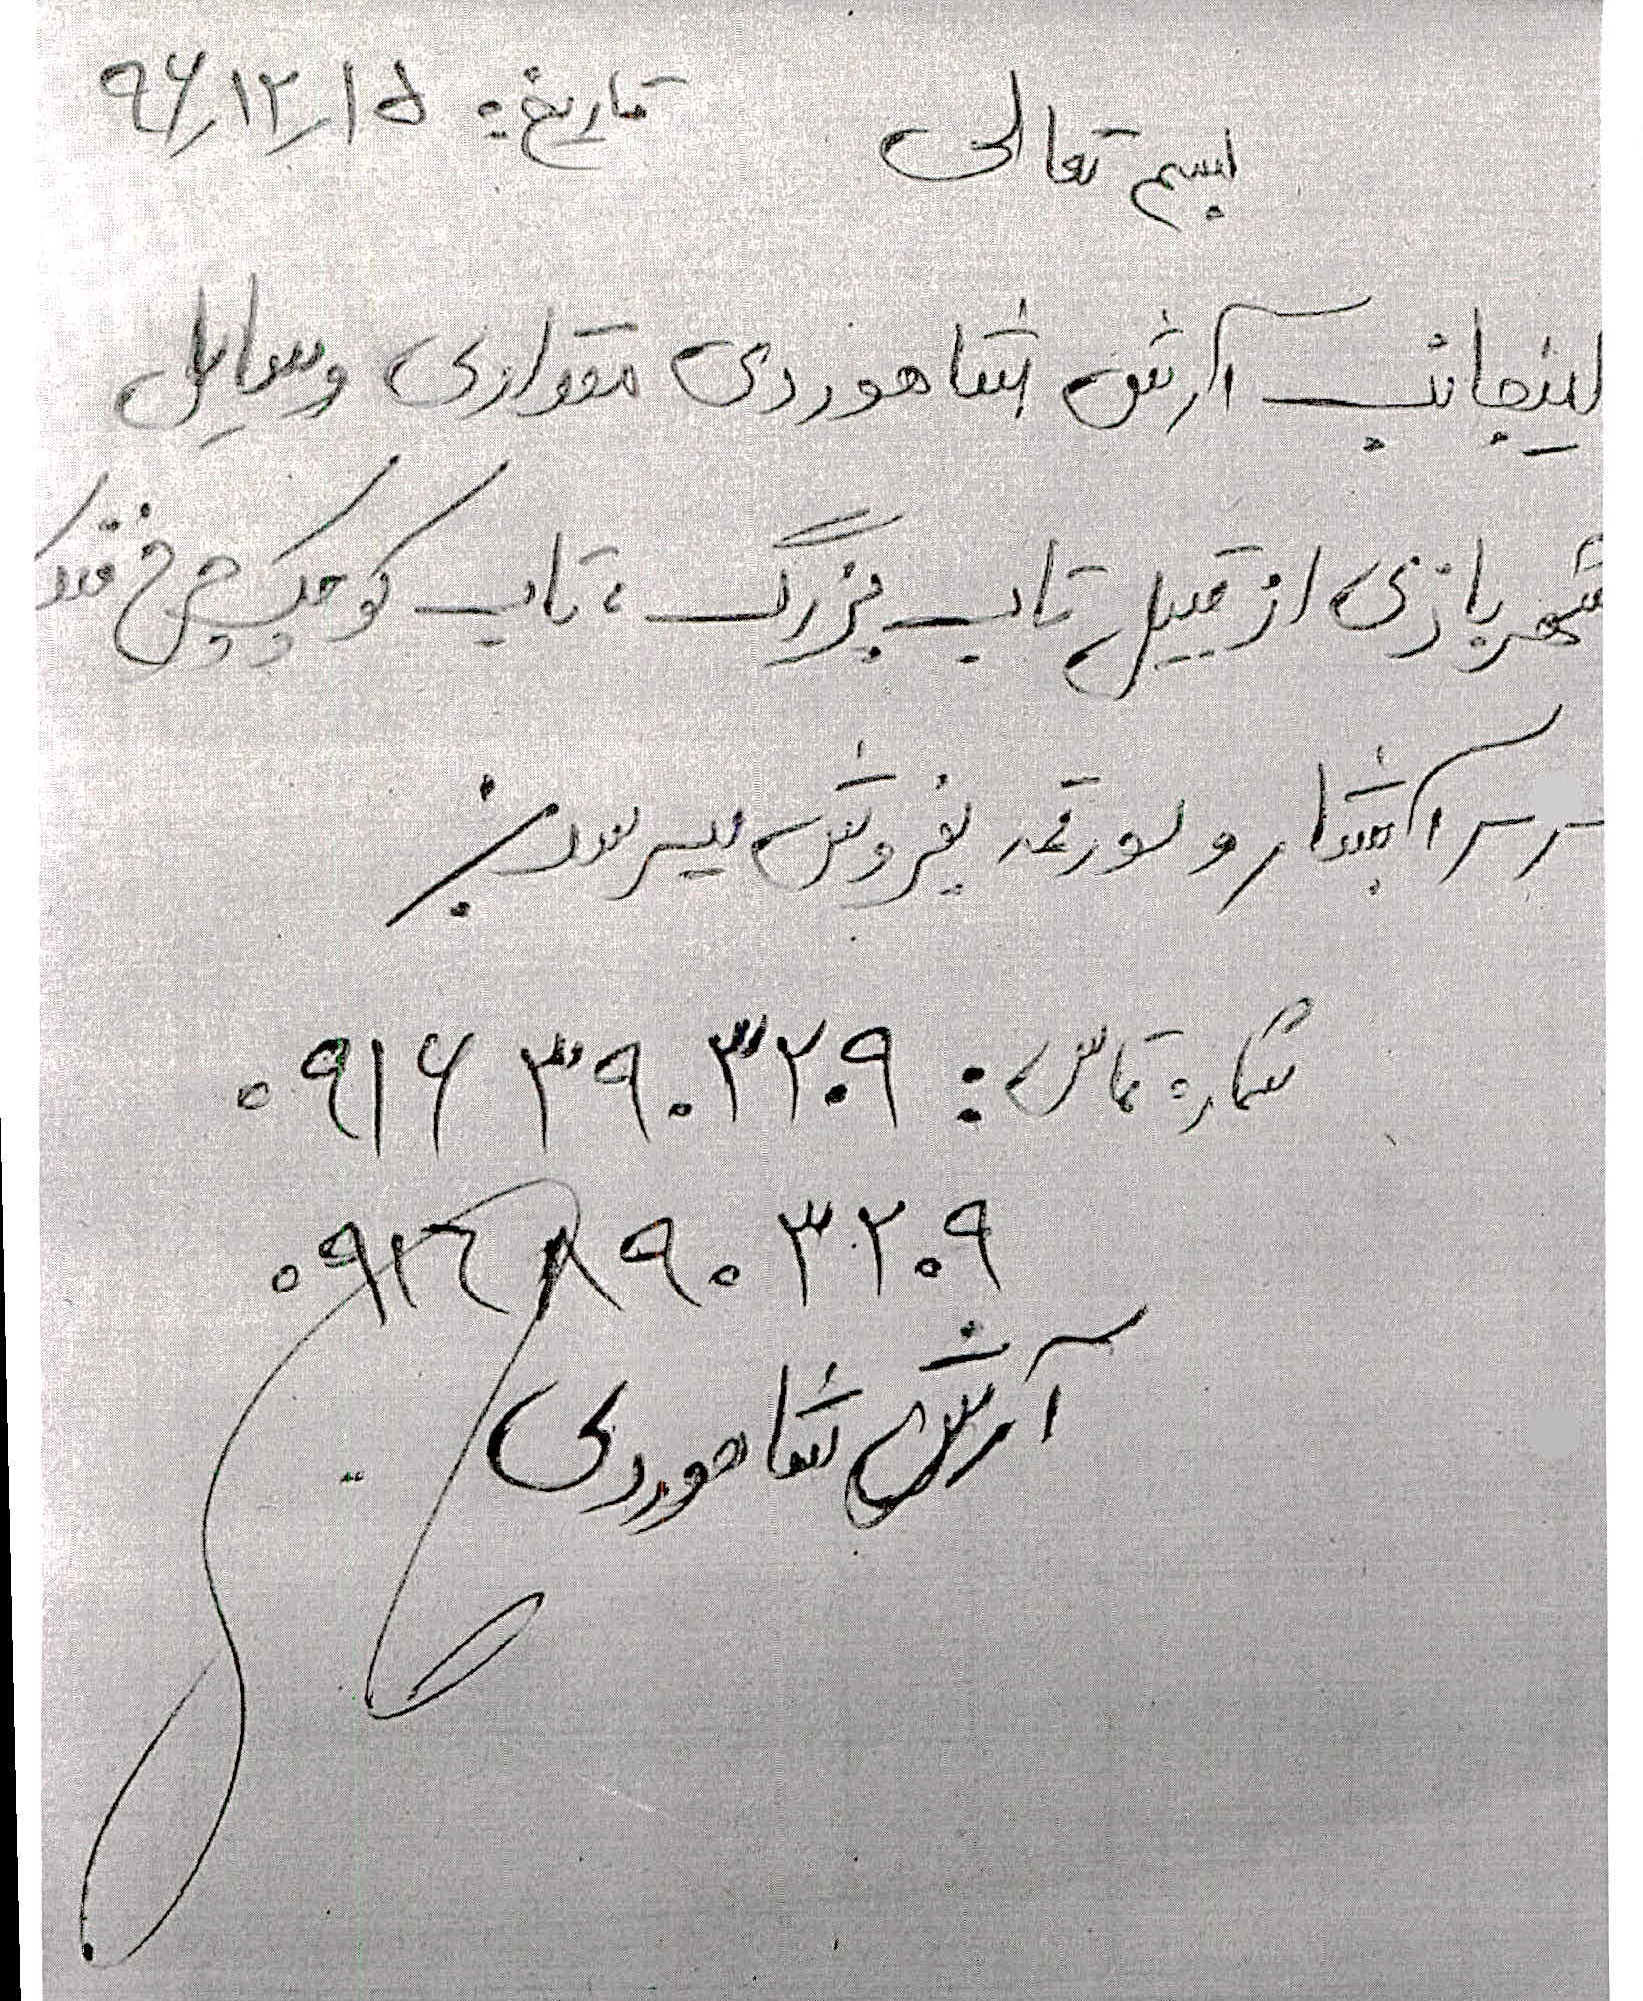 بسم تعالی
تاریخ: ۹۶/۱۲/۱۵
اینجانب آرش شاهوردی مقداری وسایل
شهربازی از قبیل تاب بزرگ، تاب کوچک چرخ فلک
سرسر آبشار و سورتمه بفروش میرسد
شماره تماس: ۰۹۱۶۳۹۰۳۲۰۹
۰۹۱۶۸۹۰۳۲۰۹
آرش شاهوردی